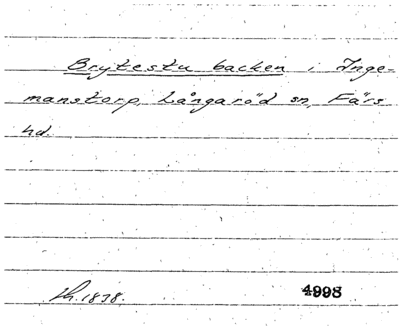 Brytestu backen i Inge-
manstorp, Långaröd sn, Färs
hd.
Lh. 1838. 4998